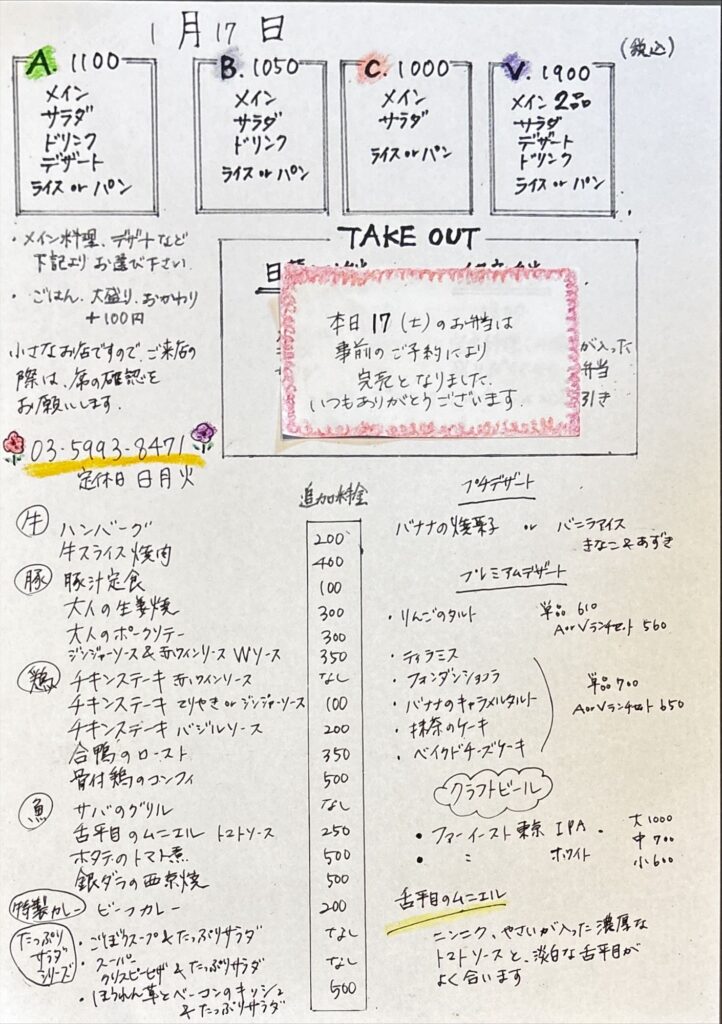 1月17日
(税込)
A. 1100
メイン
サラダ
ドリンク
デザート
ライス or パン
B. 1050
メイン
サラダ
ドリンク
ライス or パン
C. 1000
メイン
サラダ
ライス or パン
V. 1900
メイン 2品
サラダ
デザート
ドリンク
ライス or パン
・メイン料理、デザートなど
下記より お選び下さい
・ごはん、大盛り、おかわり
+100円
小さなお店ですので、ご来店の
際は、席の確認を
お願いします。
03-5993-8471
定休日 日月火
TAKE OUT
本日 17 (土) のお弁当は
事前のご予約により
完売となりました。
いつもありがとうございます。
が入った
弁当
引き
追加料金
牛 ハンバーグ 200
牛スライス焼肉 400
豚 豚汁定食 100
大人の生姜焼 300
大人のポークソテー 300
ジンジャーソース & 赤ワインソース Wソース 350
鶏 チキンステーキ 赤ワインソース なし
チキンステーキ てりやき or ジンジャーソース 100
チキンステーキ バジルソース 200
合鴨のロースト 350
骨付鶏のコンフィ 500
魚 サバのグリル なし
舌平目のムニエル トマトソース 250
ホタテのトマト煮 500
銀ダラの西京焼 500
特製カレー ビーフカレー 200
たっぷりサラダシリーズ
・ごぼうスープ & たっぷりサラダ なし
・スーパークリスピーピザ & たっぷりサラダ なし
・ほうれん草とベーコンのキッシュ & たっぷりサラダ 500
プチデザート
バナナの焼菓子 or バニラアイス
きなこ & あずき
プレミアムデザート
・りんごのタルト 単品 610
A or V ランチセット 560
・ティラミス
・フォンダンショコラ
・バナナのキャラメルタルト
・抹茶のケーキ
・ベイクドチーズケーキ
単品 700
A or V ランチセット 650
クラフトビール
・ファーイースト東京 IPA
・ 〃 ホワイト
大 1000
中 700
小 600
舌平目のムニエル
ニンニク、やさいが入った濃厚な
トマトソースと、淡白な舌平目が
よく合います